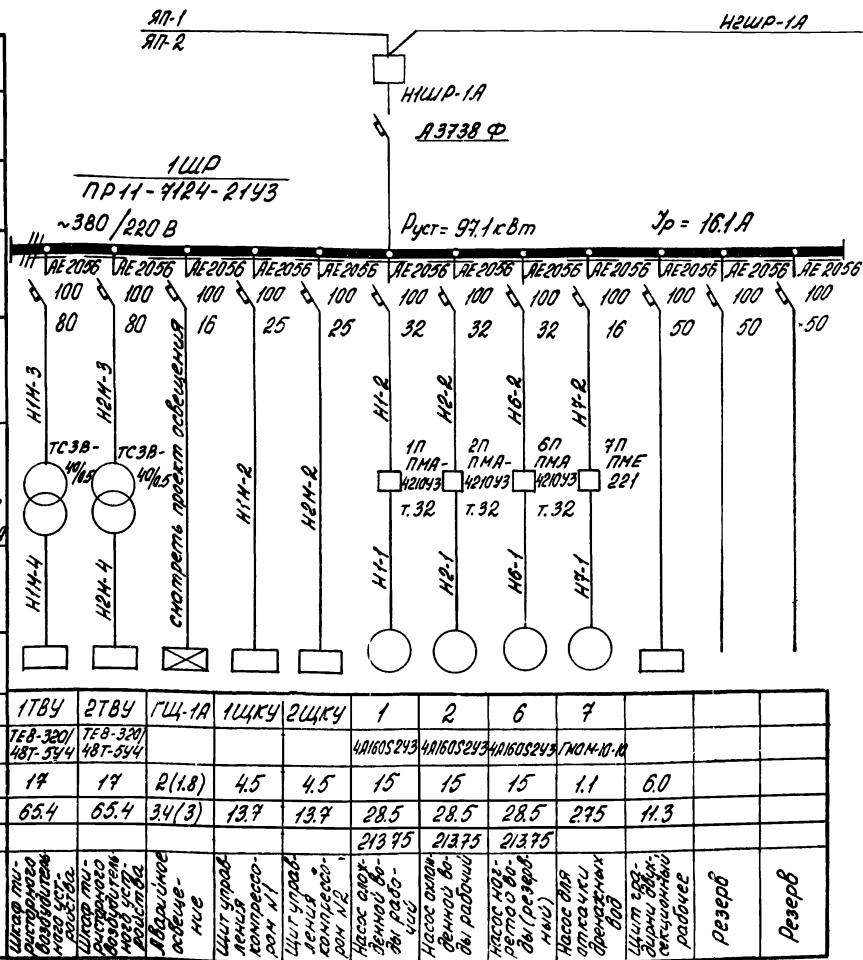 ЯП-1
ЯП-2
Н2ШР-1А
Н1ШР-1А
А3738 Ф
1ШР
ПР11-7124-21У3
~380/220 В
Руст = 97.1 кВт
Jр = 161 А
АЕ2056 АЕ2056 АЕ2056 АЕ2056 АЕ2056 АЕ2056 АЕ2056 АЕ2056 АЕ2056 АЕ2056 АЕ2056 АЕ2056
100 100 100 100 100 100 100 100 100 100 100 100
80 80 16 25 25 32 32 32 16 50 50 50
Н1М-3
Н2М-3
смотреть проект освещения
Н1М-2
Н2М-2
Н1-2
Н2-2
Н6-2
Н7-2
ТСЗВ-
40/0.5
ТСЗВ-
40/0.5
1П
ПМА-
4210У3
Т.32
2П
ПМА-
4210У3
Т.32
6П
ПМА
4210У3
Т.32
7П
ПМЕ
221
Н1М-4
Н2М-4
Н1-1
Н2-1
Н6-1
Н7-1
1ТВУ 2ТВУ ГЩ-1А 1ЩКУ 2ЩКУ 1 2 6 7
ТЕ8-320/
48Т-5У4
ТЕ8-320/
48Т-5У4
4А160S2У3 4А160S2У3 4А160S2У3 ГНОМ-10-10
17 17 2(1.8) 4.5 4.5 15 15 15 1.1 6.0
65.4 65.4 3.4(3) 13.7 13.7 28.5 28.5 28.5 2.75 11.3
213.75 213.75 213.75
Шкаф ти-
ристорного
возбудитель-
ного уст-
ройства
Шкаф ти-
ристорного
возбудитель-
ного уст-
ройства
Аварийное
освеще-
ние
Щит управ-
ления
компрессо-
ром №1
Щит управ-
ления
компрессо-
ром №2
Насос охлаж-
денной во-
ды рабо-
чий
Насос охлаж-
денной во-
ды рабочий
Насос наг-
ретой во-
ды (резерв-
ный)
Насос для
откачки
дренажных
вод
Щит гра-
дирни двух-
секционный
рабочее
Резерв
Резерв